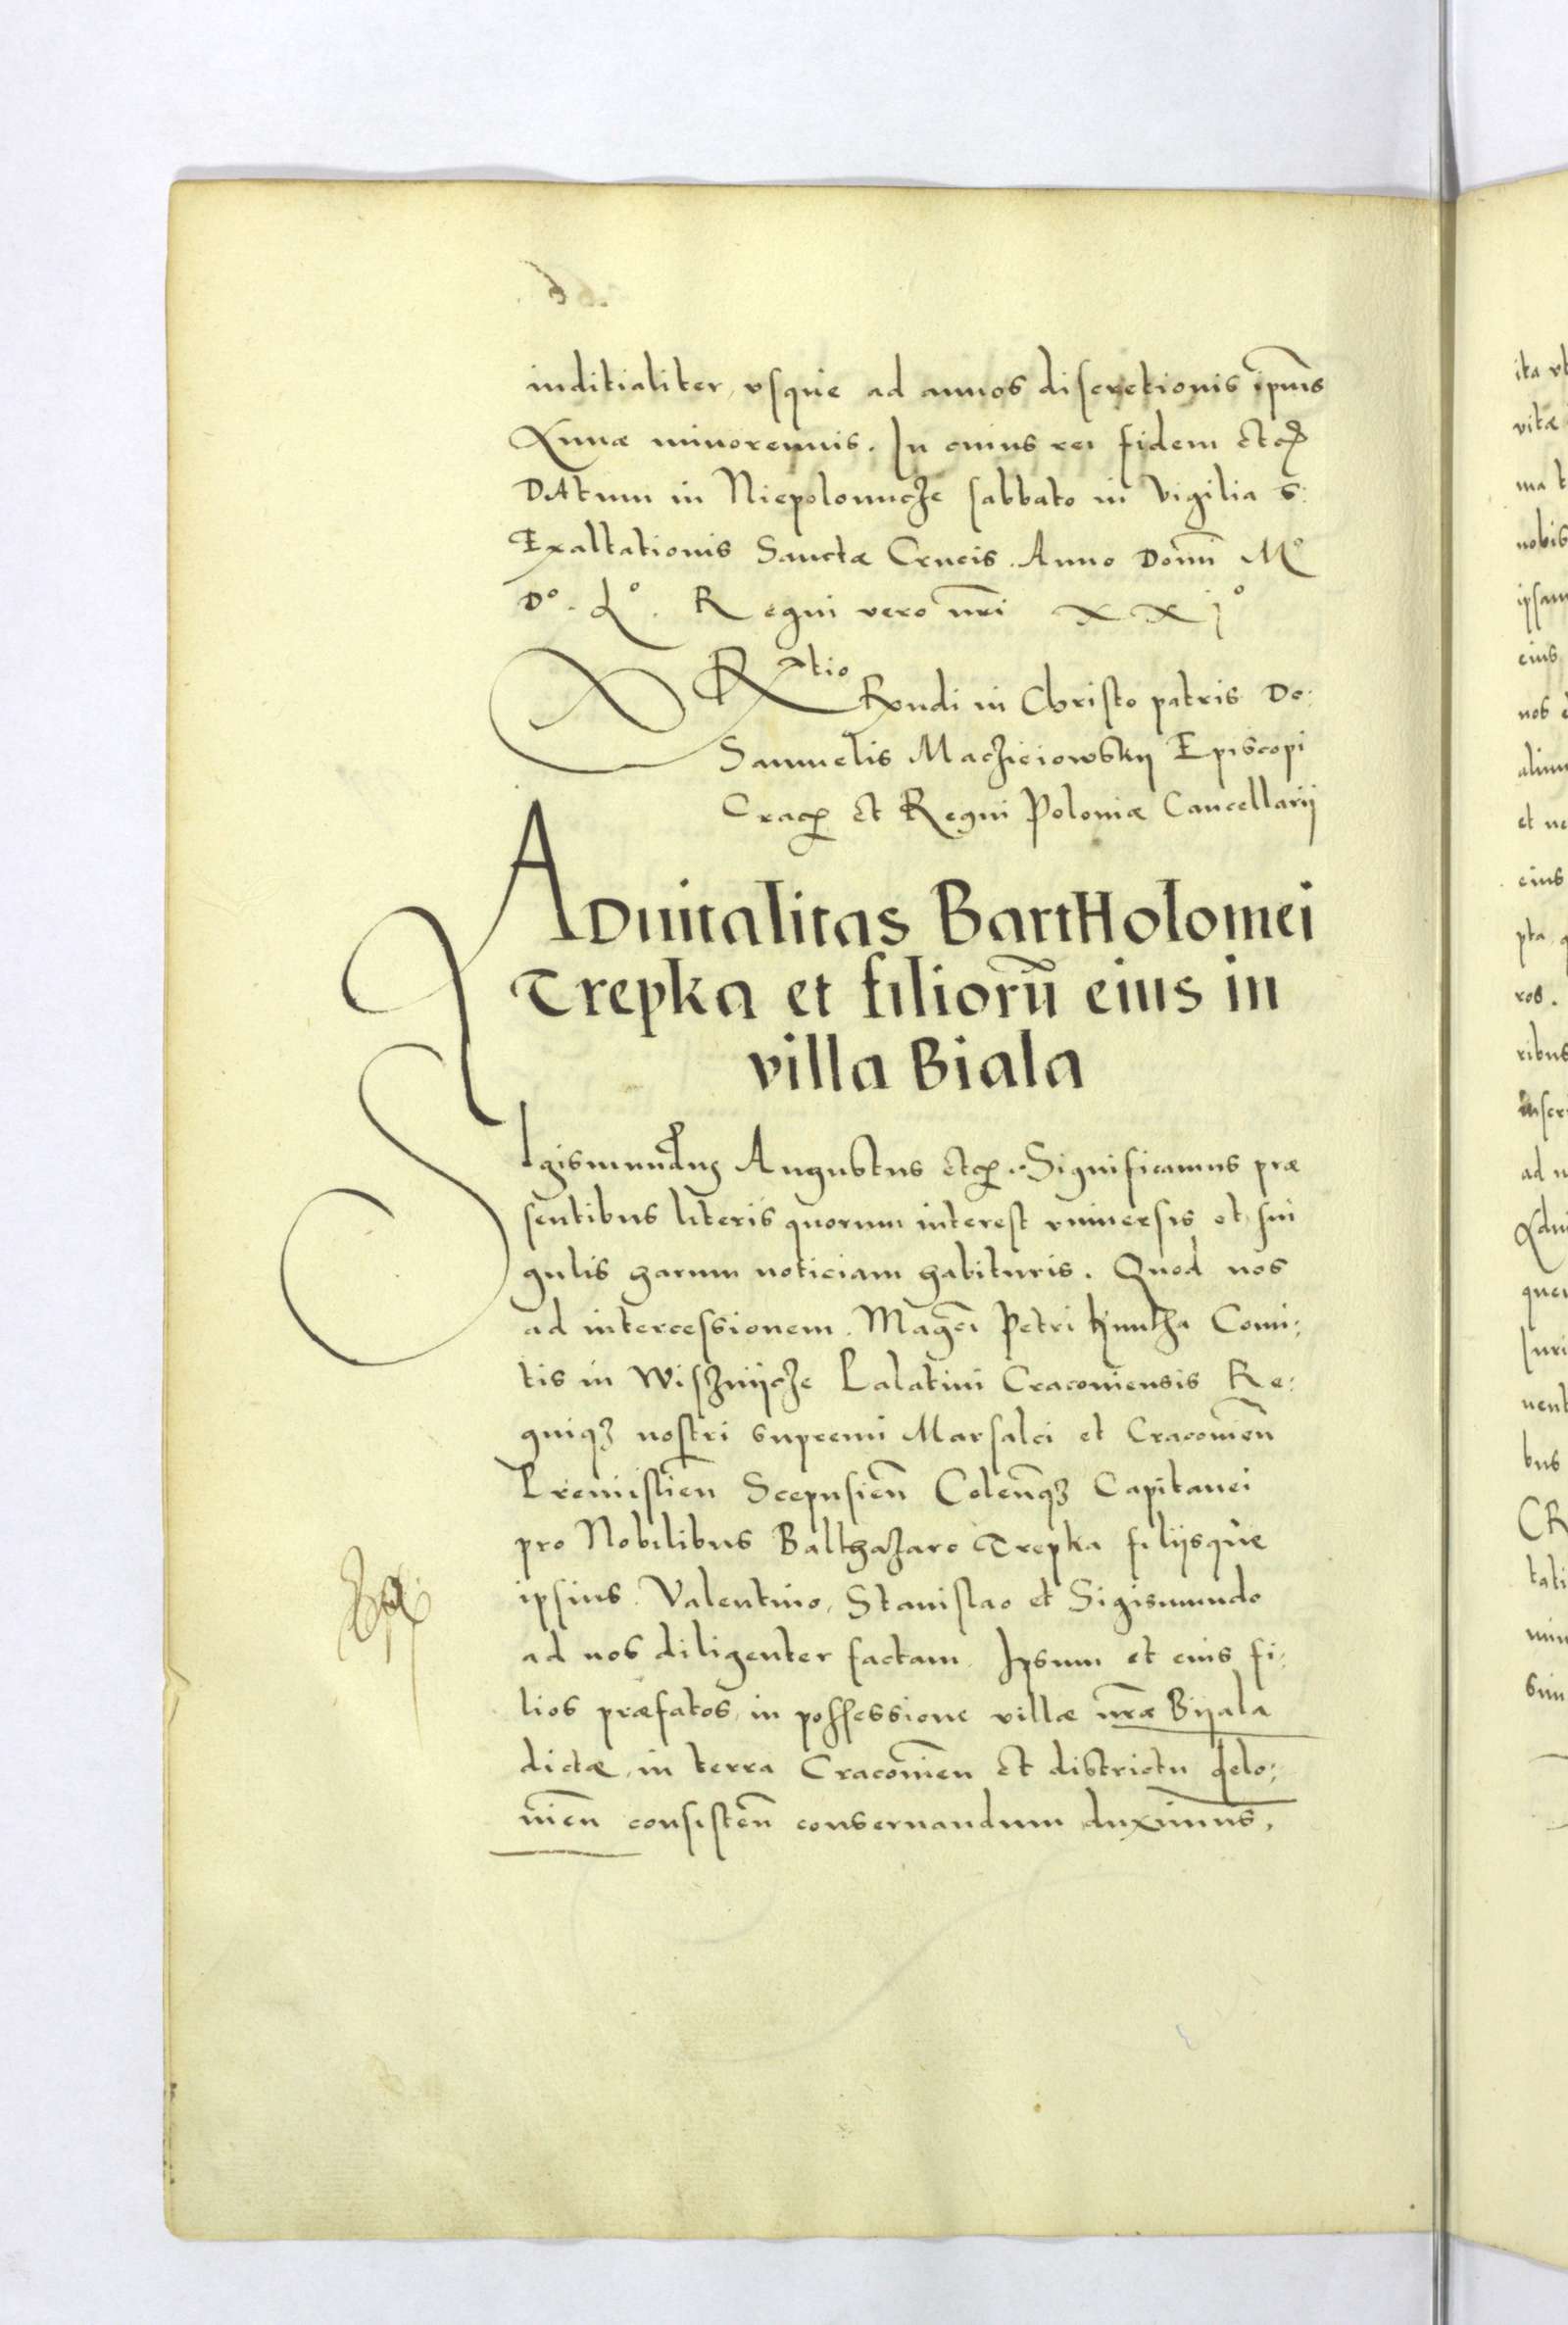 iuditialiter, vsque ad annos discretionis ipius
Annæ minorennis. In cuius rei fidem etc
DAtum in Niepolomicze sabbato in vigilia S:
Exaltationis Sanctæ Crucis. Anno Domi Mº
Dº. Lº. Regni vero nri XXjº
Rtio
Rxndi in Christo patris Do:
Samuelis Macziciowskij Episcopi
Crac et Regni Poloniæ Cancellarij
ADuitalitas BartHolomei
Trepka et filioru eius in
villa Biala
SIgismundus Augustus etc. Significamus præ
sentibus literis quorum interest vniuersis et sin
gulis harum noticiam habituris. Quod nos
ad intercessionem. Magci Petri Kmitha Comi:
tis in Wisznijcze Palatini Cracouiensis Re:
gniqz nostri supremi Marsalci et Cracouien
Premislien Scepusien Colenqz Capitanei
pro Nobilibus Balthazaro Trepka filijsque
ipsius. Valentino, Stanislao et Sigismundo
ad nos diligenter factam. Ipsum et eius fi:
lios præfatos, in possessione villæ nræ Bijala
dictæ, in terra Cracouien et districtu Lelo:
uien consisten conseruandum duximus,